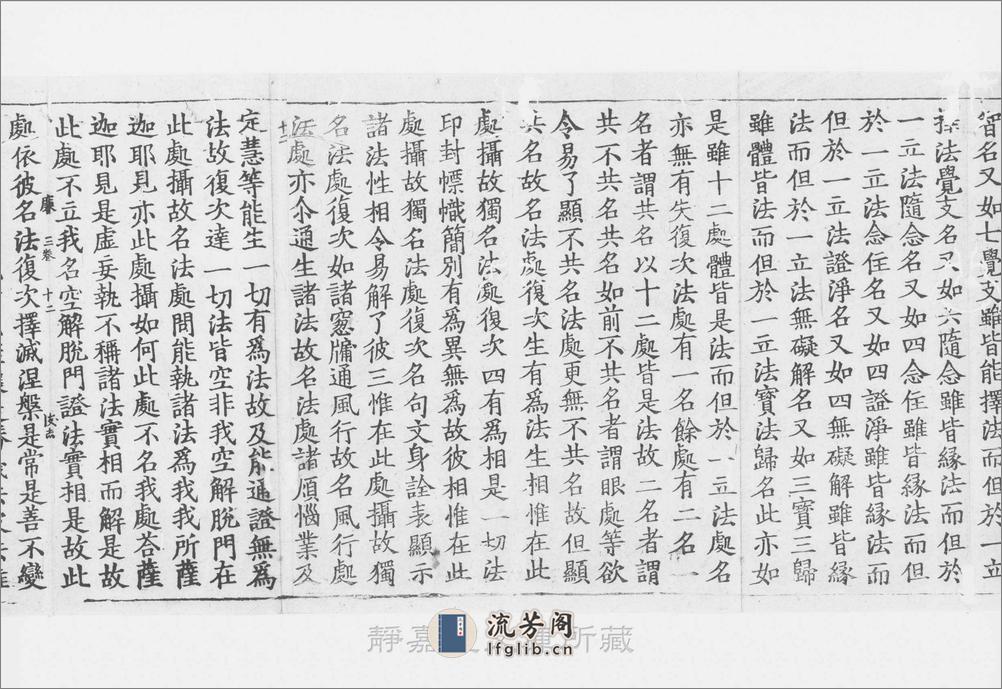 智名又如七覺支雖皆能擇法而但於一立
擇法覺支名又如六隨念雖皆緣法而但於
一立法隨念名又如四念住雖皆緣法而但
於一立法念住名又如四證淨雖皆緣法而
但於一立法證淨名又如四無礙解雖皆緣
法而但於一立法無礙解名又如三寶三歸
雖體皆法而但於一立法寶法歸名此亦如
是雖十二處體皆是法而但於一立法處名
亦無有失復次法處有一名餘處有二名一
名者謂共名以十二處皆是法故二名者謂
共不共名共名如前不共名者謂眼處等欲
令易了顯不共名法處更無不共名故但顯
共名故名法處復次生有為法生相惟在此
處攝故獨名法處復次四有為相是一切法
印封幖幟簡別有為異無為故彼相惟在此
處攝故獨名法處復次名句文身詮表顯示
諸法性相令易解了彼三惟在此處攝故獨
名法處復次如諸窓牖通風行故名風行處
法處亦尒通生諸法故名法處諸煩惱業及
定慧等能生一切有為法故及能通證無為
法故復次達一切法皆空非我空解脫門在
此處攝故名法處問能執諸法為我我所薩
迦耶見亦此處攝如何此處不名我處荅薩
迦耶見是虛妄執不稱諸法實相而解是故
此處不立我名空解脫門證法實相是故此
廉 三卷 十二
處依彼名法復次擇滅涅槃是常是善不變
靜嘉 所藏
流芳阁
lfglib.cn